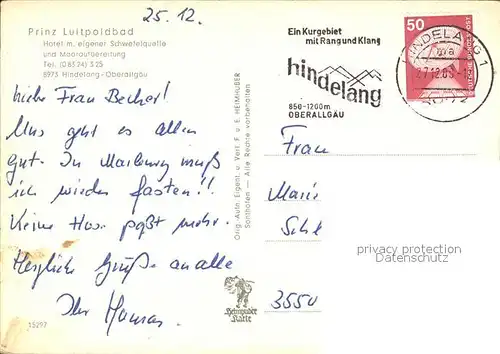 25. 12.
Prinz Luitpoldbad
Hotel m. eigener Schwefelquelle
und Mooraufbereitung
Tel. (08324) 525
8973 Hindelang-Oberallgäu
Liebe Frau Becker!
Uns geht es allen
gut. In Marburg muß
ich wieder fasten!!
Keine Hose paßt mehr.
Herzliche Grüße an alle
Ihr
15297
Orig.-Aufn. Eigent. u. Verl. F. u. E. HEIMHUBER
Sonthofen — Alle Rechte vorbehalten
Heimhuber
Karte
Ein Kurgebiet
mit Rang und Klang
hindelang
850-1200m
OBERALLGÄU
50
HINDELANG 1
DEUTSCHE BUNDESPOST
Frau
Marie
3550
privacy protection
Datenschutz